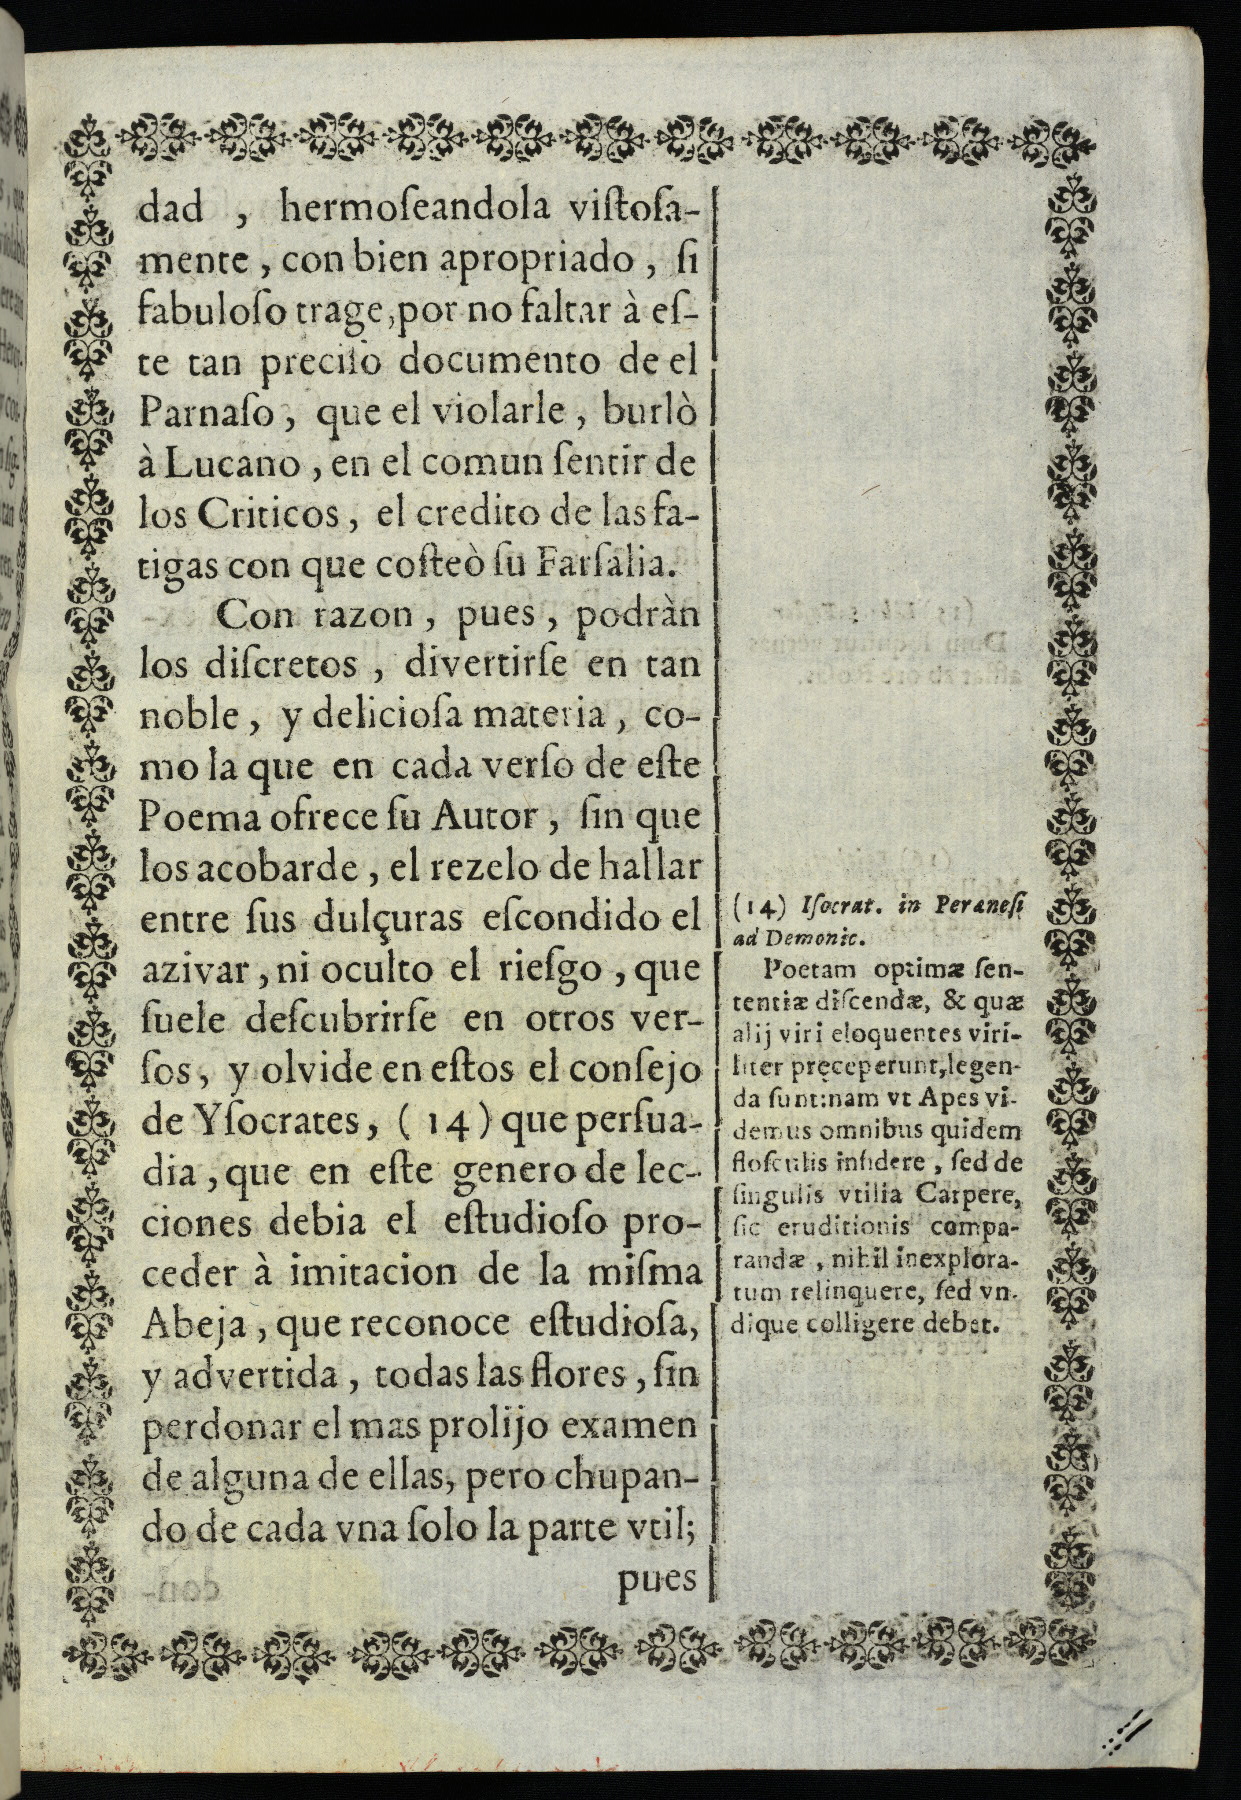 dad , hermoſeandola viſtoſa-
mente , con bien apropriado , ſi
fabuloſo trage, por no faltar à eſ-
te tan preciſo documento de el
Parnaſo , que el violarle , burlò
à Lucano , en el comun ſentir de
los Criticos , el credito de las fa-
tigas con que coſteò ſu Farſalia.
Con razon , pues , podràn
los diſcretos , divertirſe en tan
noble , y delicioſa materia , co-
mo la que en cada verſo de eſte
Poema ofrece ſu Autor , ſin que
los acobarde , el rezelo de hallar
entre ſus dulçuras eſcondido el
azivar , ni oculto el rieſgo , que
ſuele deſcubrirſe en otros ver-
ſos , y olvide en eſtos el conſejo
de Yſocrates, ( 14 ) que perſua-
dia , que en eſte genero de lec-
ciones debia el eſtudioſo pro-
ceder à imitacion de la miſma
Abeja , que reconoce eſtudioſa,
y advertida , todas las flores , ſin
perdonar el mas prolijo examen
de alguna de ellas, pero chupan-
do de cada vna ſolo la parte vtil;
pues
(14) Iſocrat. in Peraneſi
ad Demonic.
Poetam optimæ ſen-
tentiæ diſcendæ, & quæ
alij viri eloquentes viri-
liter pręceperunt, legen-
da ſunt: nam vt Apes vi-
demus omnibus quidem
floſculis inſidere , ſed de
ſingulis vtilia Carpere,
ſic eruditionis compa-
randæ , nihil inexplora-
tum relinquere, ſed vn-
dique colligere debet.